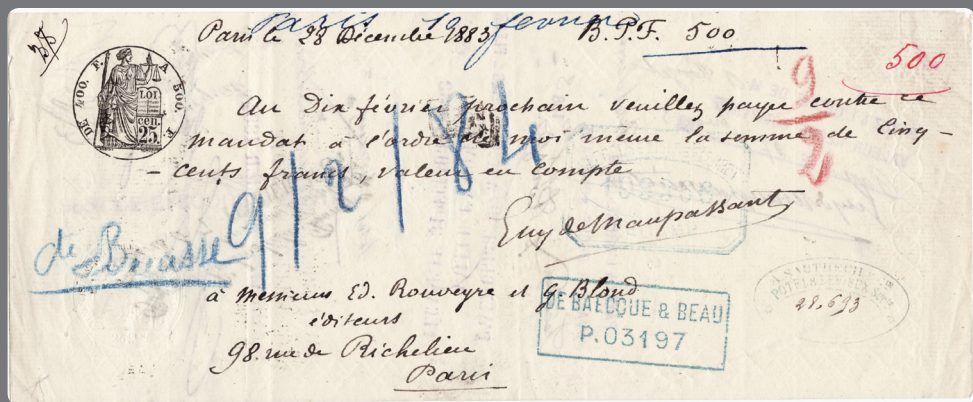 Paris 10 février
Paris le 28 Décembre 1883 B.P.F. 500
500
DE 400. F. A 500. F.
LOI
cen.
25.
Au Dix février prochain veuillez payer contre ce
mandat à l'ordre de moi même la somme de Cinq -
- cents francs, valeur en compte
9/2
9/2/84
Guy de Maupassant
à messieurs Ed. Rouveyre et G. Blond
éditeurs
98. rue de Richelieu
Paris
DE BAECQUE & BEAU
P.03197
28.693